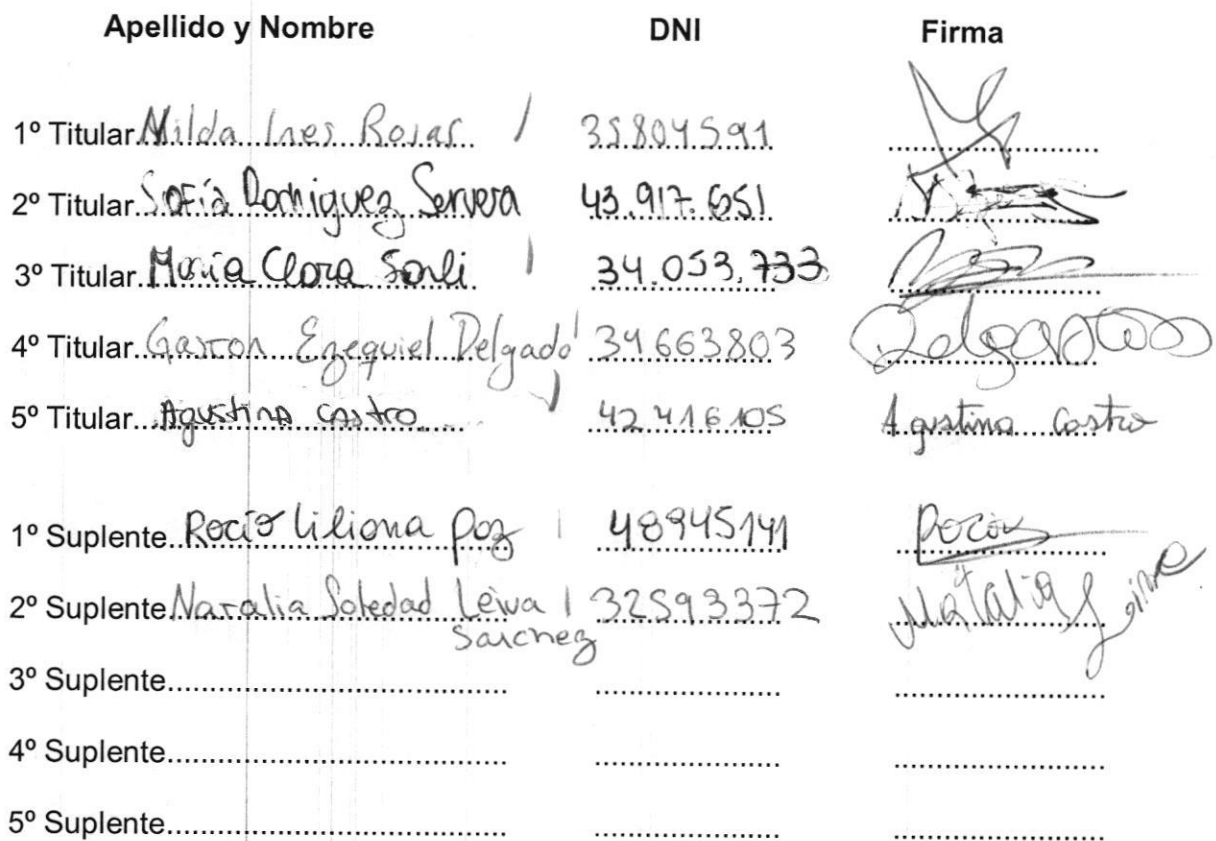 Apellido y Nombre DNI Firma
1º Titular Nilda Ines Rosas 35804591
2º Titular Sofía Rodriguez Servera 43.917.651
3º Titular María Clara Sarli 34.053.733
4º Titular Gaston Ezequiel Delgado 34663803 Delgado
5º Titular Agustina Castro 42416105 Agustina Castro
1º Suplente Rocío Liliana Paz 48945141 Rocío
2º Suplente Natalia Soledad Leiva 32593372 Natalia Leiva
Sanchez
3º Suplente
4º Suplente
5º Suplente